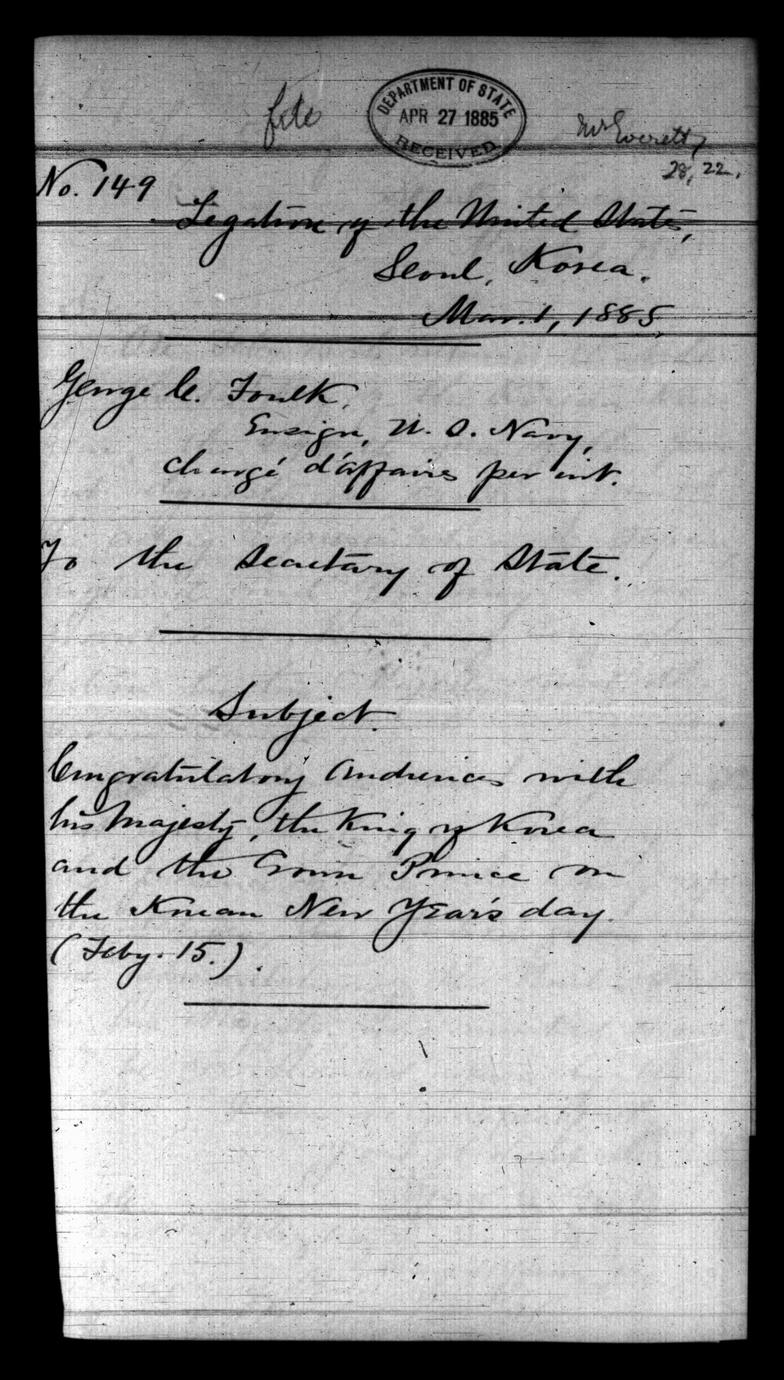 file
DEPARTMENT OF STATE
APR 27 1885
RECEIVED
Mr Everett
28, 22.
No. 149
Legation of the United States,
Seoul, Korea.
Mar. 1, 1885
George C. Foulk,
Ensign, U. S. Navy,
chargé d'affaires per int.
To the Secretary of State.
Subject.
Congratulatory Audiences with
his Majesty, the King of Korea
and the Crown Prince on
the Korean New Year's day.
(Feby. 15.).